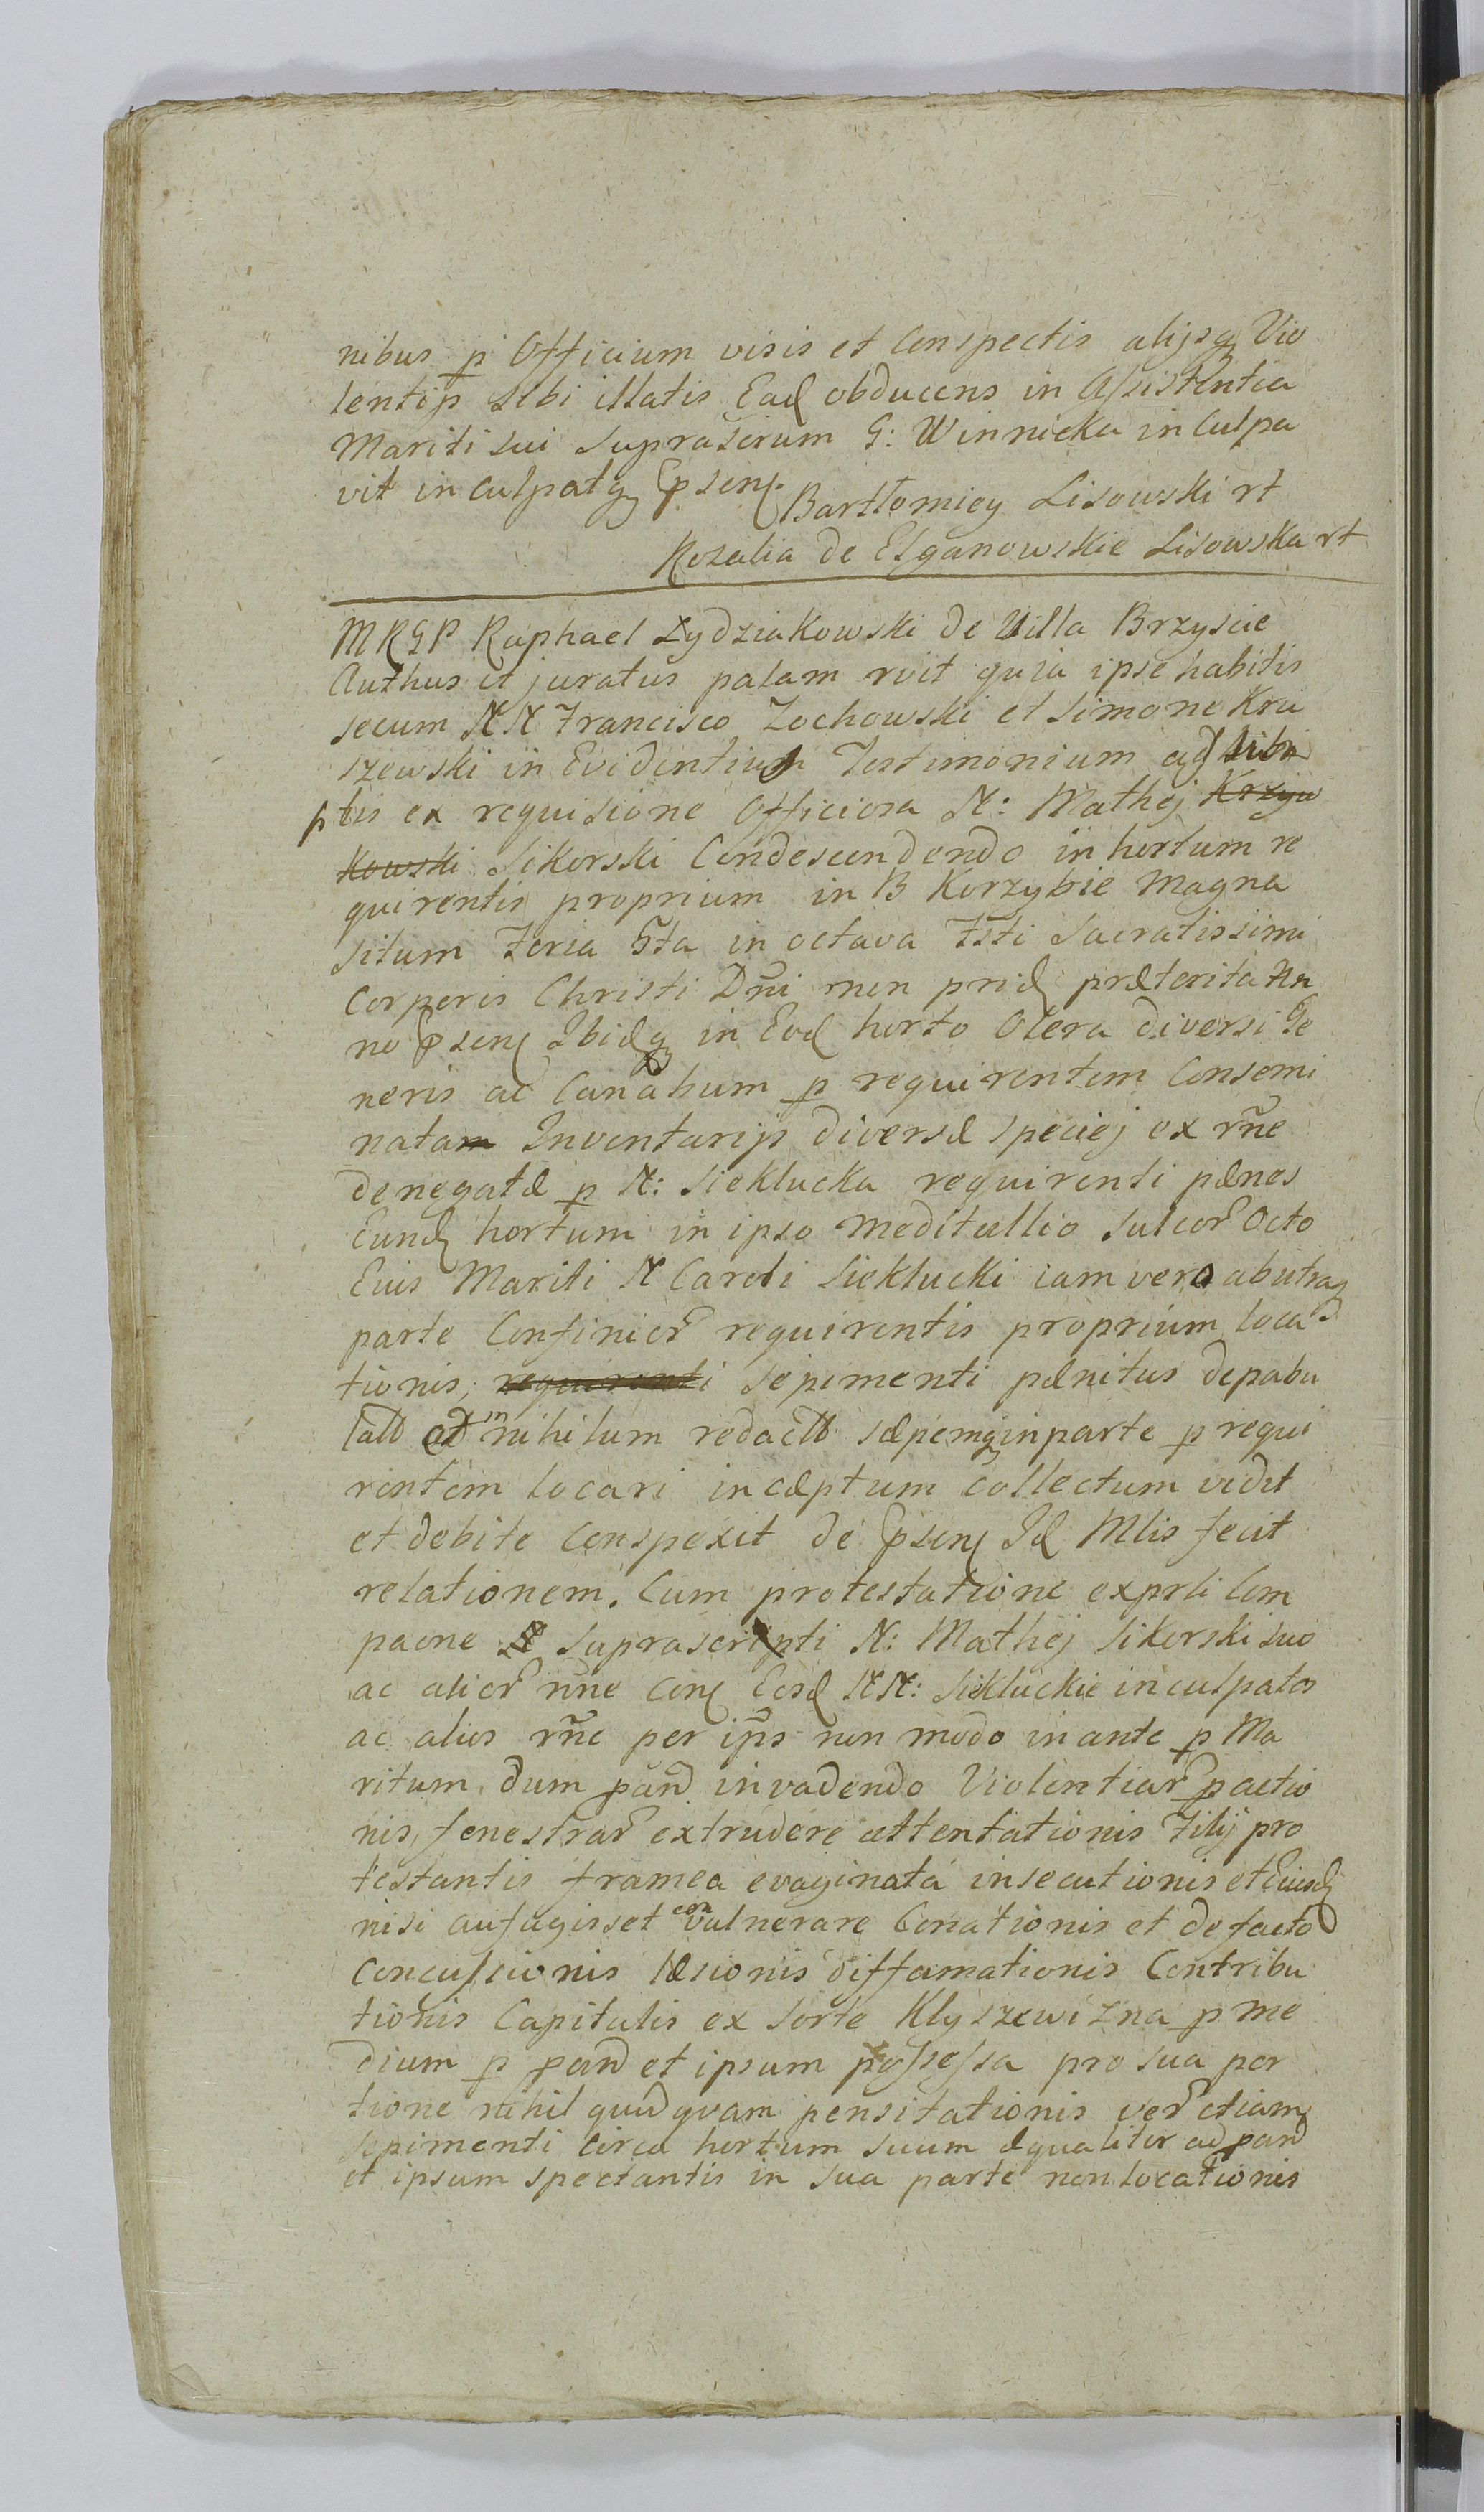 nibus p Officium visis et Conspectis alijsq Vio
lentijs sibi illatis Ead obducens in Assistentia
Mariti sui suprascrum G: Winnicka inculpa
vit inculpatq psen.
Bartłomiey Lisowski rt
Rozalia de Elganowskie Lisowska rt
MRGP Raphael Zydziakowski de Villa Brzyscie
Authus et juratus palam rvit quia ipse habitis
secum NN Francisco Zochowski et Simone Kru
szewski in Evidentius Testimonium ad
ptis ex requisione Officiosa N: Mathej Krzyw
kowski Sikorski Condescendendo in hortum re
quirentis proprium in B Korzybie Magna
situm Feria 5ta in octava Fsti Sacratissimi
Corporis Christi Dni non prid præterita An
no psen Ibidq in Eod horto Olera diversi Ge
neris ac Canabum p requirentem Consemi
natam Inventarijs diversæ speciej ex rne
denegatæ p N: Sieklucka requirenti pænes
Eund hortum in ipso meditullio sulcor Octo
Eius Mariti N Caroli Sieklucki iam vero abutraq
parte Confinior requirentis proprium loca
tionis, requirenti sepimenti pænitus depabu
lat et in nihilum redact sæpemq in parte p requi
rentem locari incæptum collectum vidit
et debite Conspexit de psen Id Mlis fecit
relationem. Cum protestatione exprti Com
paone suprascripti N: Mathej Sikorski suo
ac alior nne Con Eosd NN: Siekluckie inculpatos
ac alios rne per ipns non modo in ante p Ma
ritum dum pand invadendo Violentiar pactio
nis, fenestrar extrudere attentationis Filij pro
testantis framea evaginata insecutionis et Eiusd
nisi aufugisset convulnerare Conationis et de facto
Concussionis læsionis diffamationis Contribu
tionis Capitalis ex sorte Klyszewizna p me
dium p pand et ipsum possessa pro sua por
tione nihil quidquam pensitationis ver etiam
sepimenti circa hortum suum æqualiter ad pand
et ipsum spectantis in sua parte non locationis